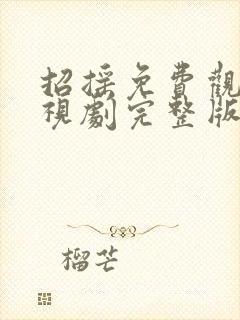 招摇免費觀
視劇完整版
榴芒